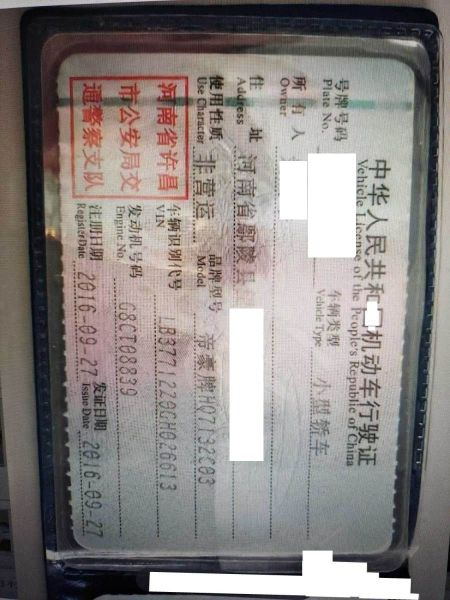 中华人民共和国机动车行驶证
Vehicle License of the People's Republic of China
号牌号码
Plate No.
车辆类型 小型轿车
Vehicle Type
所有人
Owner
住址 河南省鄢陵县
Address
使用性质 非营运
Use Character
品牌型号 帝豪牌HQ7132C03
Model
车辆识别代号 LB37712Z0GH026613
VIN
发动机号码 G8CT08839
Engine No.
注册日期 2016-09-27
Register Date
发证日期 2016-09-27
Issue Date
河南省许昌
市公安局交
通警察支队